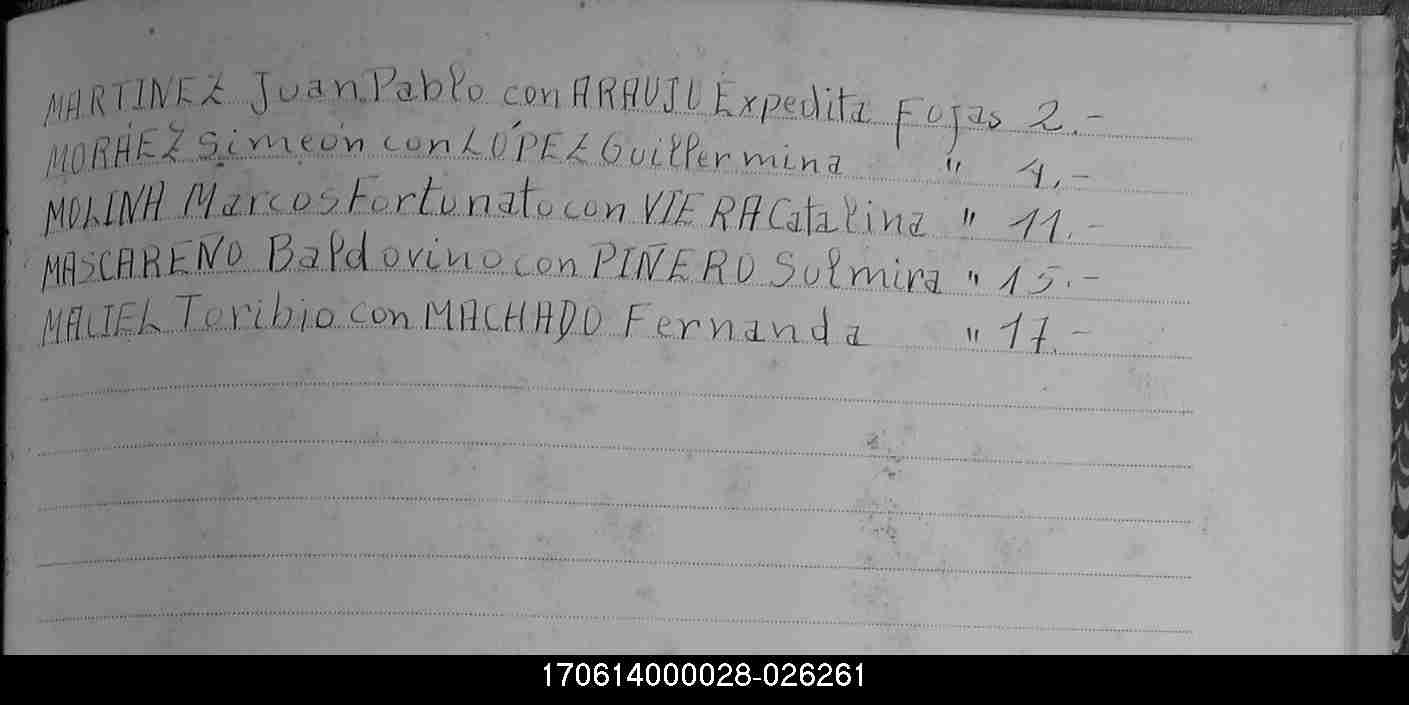 MARTINEZ Juan Pablo con ARAUJO Expedita Fojas 2.-
MORAEZ Simeón con LÓPEZ Guillermina " 4.-
MOLINA Marcos Fortunato con VIERA Catalina " 11.-
MASCAREÑO Baldovino con PIÑERO Solmira " 15.-
MACIEL Toribio con MACHADO Fernanda " 17.-
170614000028-026261